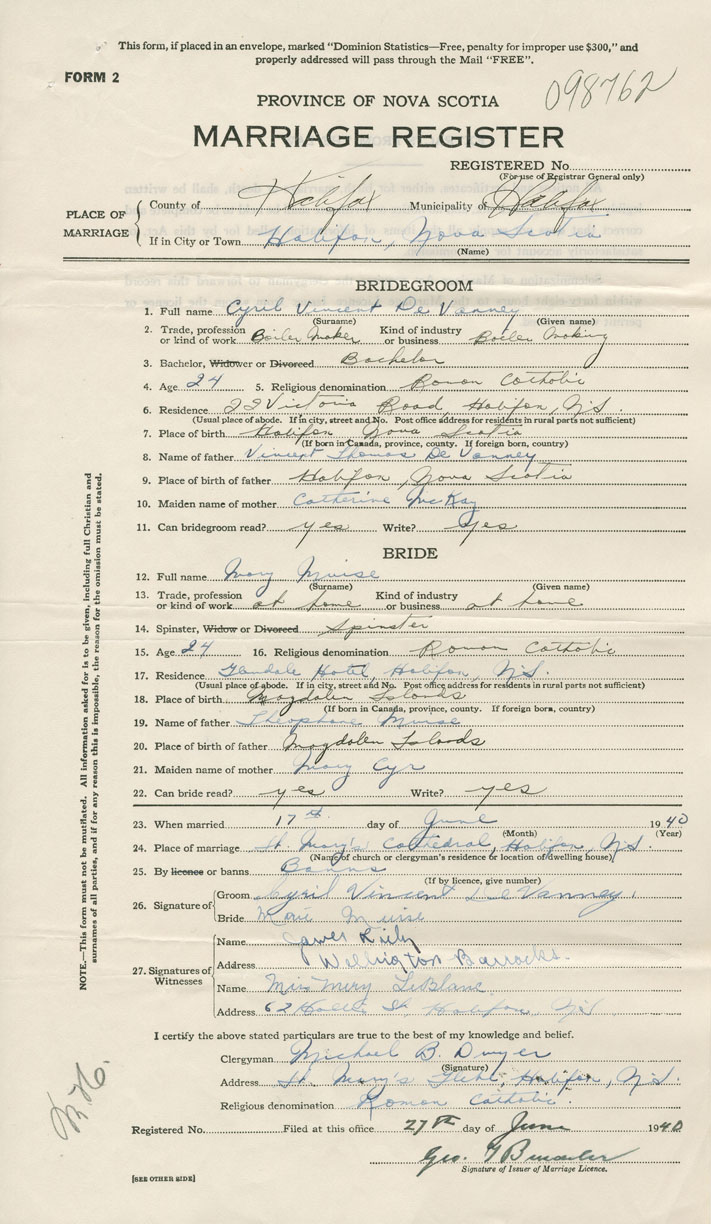 This form, if placed in an envelope, marked "Dominion Statistics—Free, penalty for improper use $300," and
properly addressed will pass through the Mail "FREE".
FORM 2
098762
PROVINCE OF NOVA SCOTIA
MARRIAGE REGISTER
REGISTERED No.
(For use of Registrar General only)
PLACE OF MARRIAGE
County of Halifax Municipality of Halifax
If in City or Town Halifax, Nova Scotia
(Name)
BRIDEGROOM
1. Full name Cyril Vincent De Vanney
(Surname) (Given name)
2. Trade, profession or kind of work Boiler Maker Kind of industry or business Boiler Making
3. Bachelor, Widower or Divorced Bachelor
4. Age 24 5. Religious denomination Roman Catholic
6. Residence 22 Victoria Road, Halifax, N.S.
(Usual place of abode. If in city, street and No. Post office address for residents in rural parts not sufficient)
7. Place of birth Halifax Nova Scotia
(If born in Canada, province, county. If foreign born, country)
8. Name of father Vincent Thomas De Vanney
9. Place of birth of father Halifax, Nova Scotia
10. Maiden name of mother Catherine McKay
11. Can bridegroom read? yes Write? yes
BRIDE
12. Full name Mary Muise
(Surname) (Given name)
13. Trade, profession or kind of work at home Kind of industry or business at home
14. Spinster, Widow or Divorced Spinster
15. Age 24 16. Religious denomination Roman Catholic
17. Residence Glendale Hotel, Halifax, N.S.
(Usual place of abode. If in city, street and No. Post office address for residents in rural parts not sufficient)
18. Place of birth Magdalen Islands
(If born in Canada, province, county. If foreign born, country)
19. Name of father Theophane Muise
20. Place of birth of father Magdalen Islands
21. Maiden name of mother Mary Cyr
22. Can bride read? yes Write? yes
23. When married 17th day of June 1940
(Month) (Year)
24. Place of marriage St. Mary's Cathedral, Halifax, N.S.
(Name of church or clergyman's residence or location of dwelling house)
25. By licence or banns Banns
(If by licence, give number)
26. Signature of
Groom Cyril Vincent De Vanney
Bride Marie Muise
27. Signatures of Witnesses
Name James
Address Wellington Barracks.
Name Miss Mary LeBlanc
Address 62 Hollis St. Halifax, N.S.
I certify the above stated particulars are true to the best of my knowledge and belief.
Clergyman Michael B. Dwyer
(Signature)
Address St. Mary's Glebe, Halifax, N.S.
Religious denomination Roman Catholic.
Registered No. Filed at this office 27th day of June 1940
Geo.
Signature of Issuer of Marriage Licence.
[SEE OTHER SIDE]
NOTE.—This form must not be mutilated. All information asked for is to be given, including full Christian and
surnames of all parties, and if for any reason this is impossible, the reason for the omission must be stated.